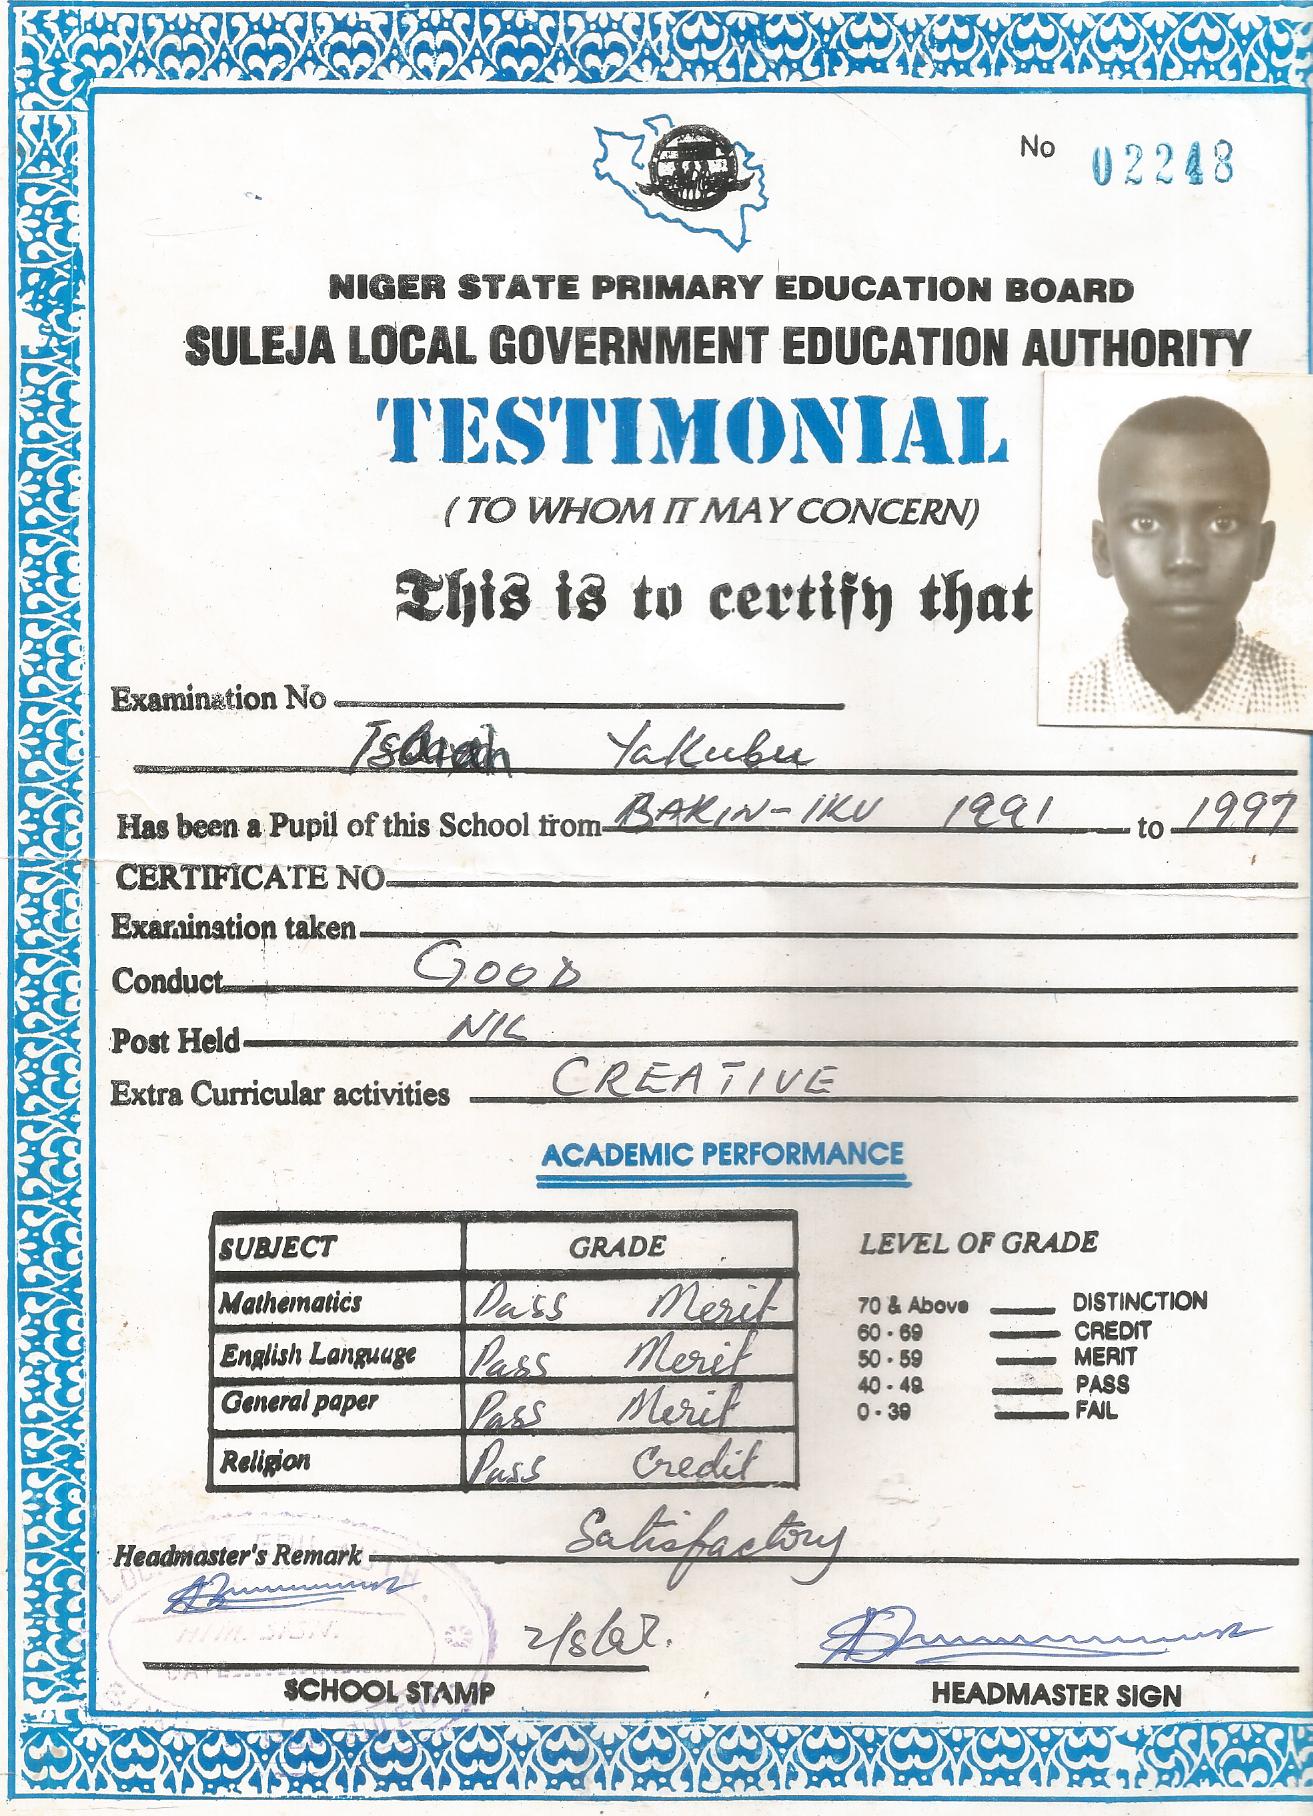 No 02248
NIGER STATE PRIMARY EDUCATION BOARD
SULEJA LOCAL GOVERNMENT EDUCATION AUTHORITY
TESTIMONIAL
(TO WHOM IT MAY CONCERN)
This is to certify that
Examination No
Yakubu
Has been a Pupil of this School from BAKIN-IKU 1991 to 1997
CERTIFICATE NO
Examination taken
Conduct GOOD
Post Held NIL
Extra Curricular activities CREATIVE
ACADEMIC PERFORMANCE
SUBJECT GRADE
Mathematics Pass Merit
English Language Pass Merit
General paper Pass Merit
Religion Pass Credit
LEVEL OF GRADE
70 & Above DISTINCTION
60 - 69 CREDIT
50 - 59 MERIT
40 - 49 PASS
0 - 39 FAIL
Headmaster's Remark Satisfactory
SCHOOL STAMP
HEADMASTER SIGN